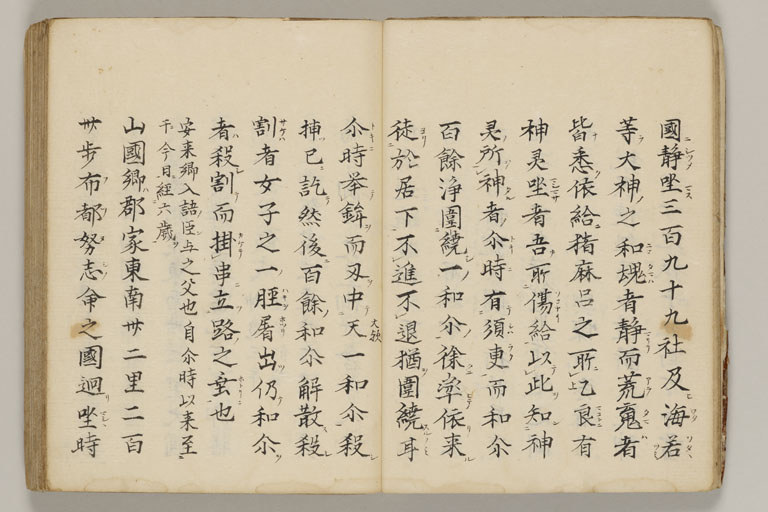 國静坐三百九十九社及海若
等大神之和魂者静而荒䰟者
皆悉依給猪麻呂之所乞良有
神灵坐者吾所傷給以此知神
灵所神者尒時有須更而和尒
百餘浄圍繞一和尒徐率依来
徒於居下不進不退猶圍繞耳
尒時挙鉾而刃中天一和尒殺
捕已訖然後百餘和尒解散殺
割者女子之一脛屠出仍和尒
者殺割而掛串立路之垂也
安来郷人語臣与之父也自尒時以来至
于今日経六歳
山國郷郡家東南卅二里二百
卅歩布都努志命之國迴坐時